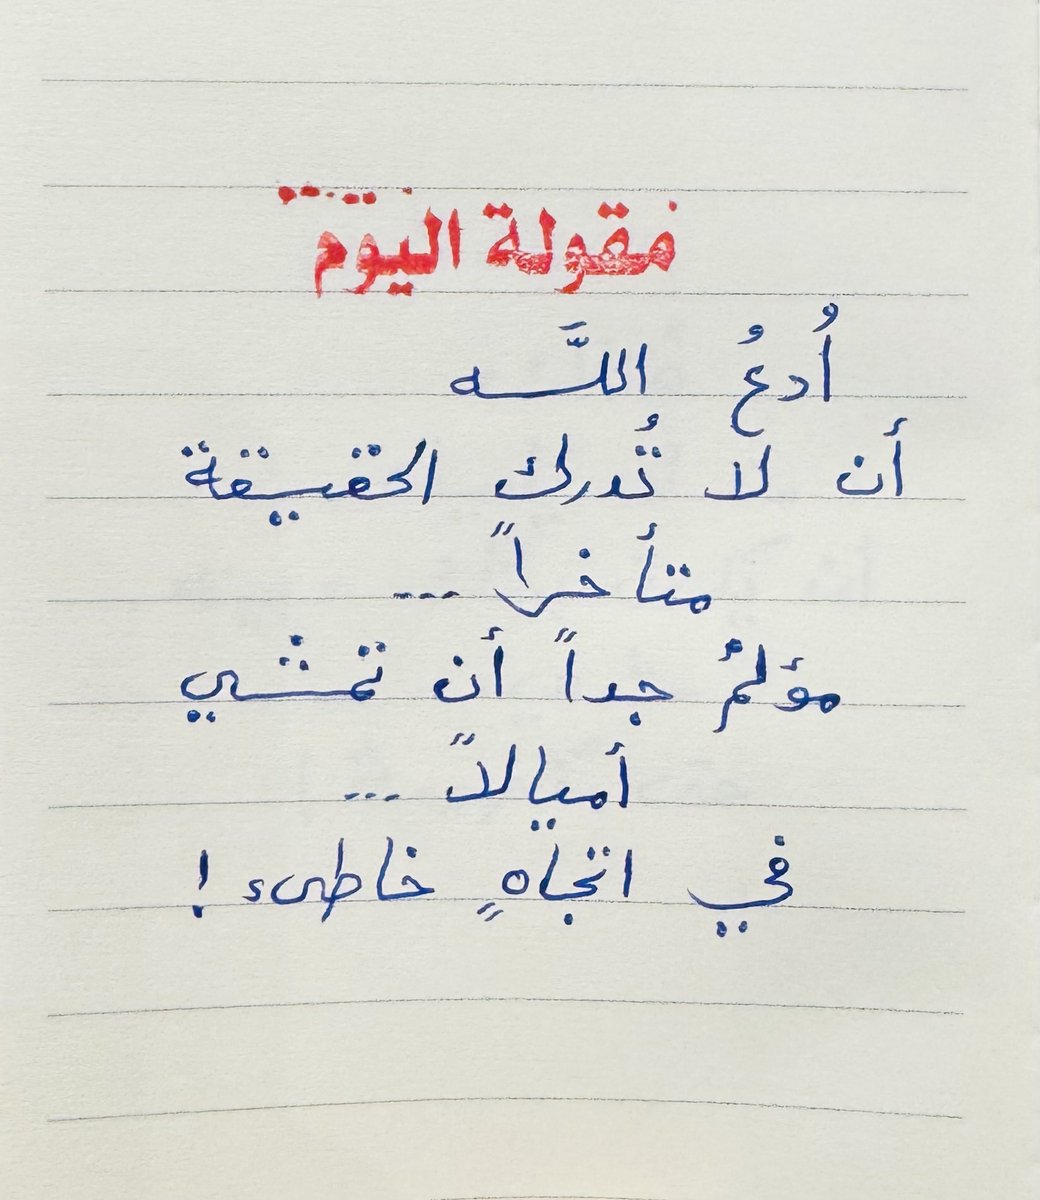 مقولة اليوم
أُدعُ اللَّه
أن لا تُدرك الحقيقة
متأخراً ...
مؤلمُ جداً أن تمشي
أميالاً ...
في اتجاهٍ خاطىء !